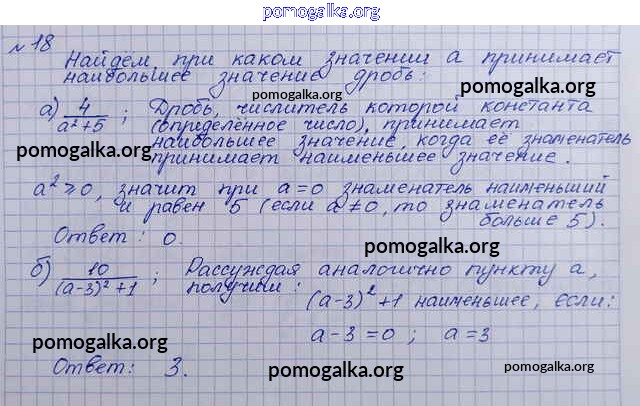 pomogalka.org
№ 18
Найдём, при каком значении а принимает
наибольшее значение дробь:
pomogalka.org
pomogalka.org
а) 4/(a²+5) ; Дробь, числитель которой константа
(определённое число), принимает
наибольшее значение, когда её знаменатель
pomogalka.org
принимает наименьшее значение.
a² ⩾ 0, значит при a = 0 знаменатель наименьший
и равен 5 (если a ≠ 0, то знаменатель
больше 5).
Ответ: 0.
pomogalka.org
б) 10/((a-3)²+1) ; Рассуждая аналогично пункту а,
получим:
(a-3)²+1 наименьшее, если:
pomogalka.org
a-3=0 ; a=3
pomogalka.org
Ответ: 3.
pomogalka.org
pomogalka.org